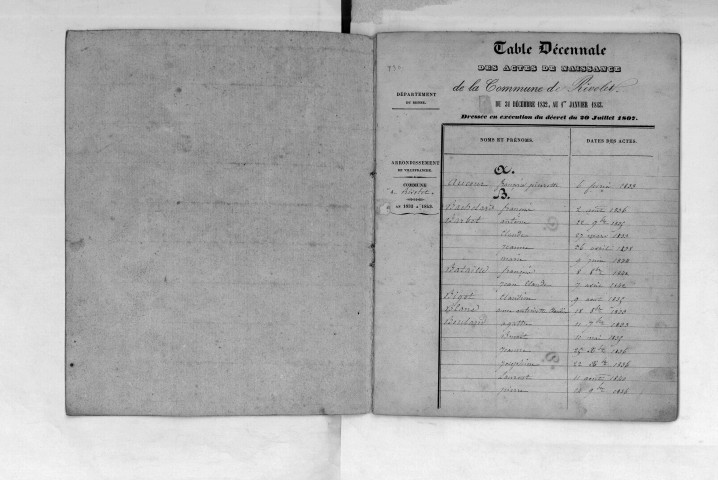 Table Décennale
DES ACTES DE NAISSANCE
de la Commune de Rivolet
DU 31 DÉCEMBRE 1832, AU 1er JANVIER 1843.
Dressée en exécution du décret du 20 Juillet 1807.
DÉPARTEMENT
DU RHONE.
ARRONDISSEMENT
DE VILLEFRANCHE.
COMMUNE
de Rivolet
DE 1833 A 1842.
NOMS ET PRÉNOMS. DATES DES ACTES.
A.
françoise pierrette 6 1833
B.
françoise 2 août 1836
Barbot antoine 12 9bre 1835
Claudine 27 mars 1833
Jeanne 26 avril 1838
marie 9 juin
Bataille françois 6 8bre 1840
jean Claude 7 août 1842
Bigot Claudine 9 août 1835
Blanc 18 8bre 1833
agathe 11 1833
Benoit 11 mai 1835
Jeanne 25 Xbre 1836
joséphine 22 Xbre 1836
Laurent 11 août 1840
pierre 18 9bre 1836